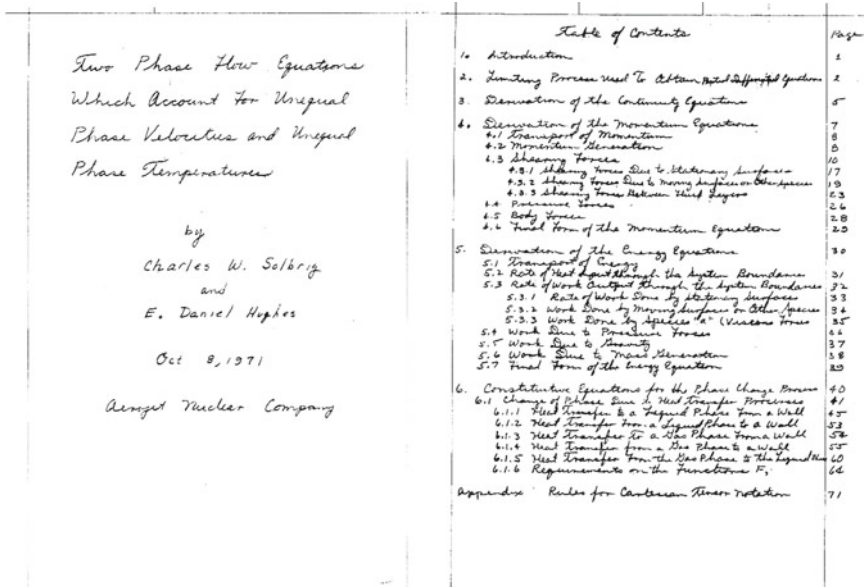 Two Phase Flow Equations
Which Account For Unequal
Phase Velocities and Unequal
Phase Temperatures
by
Charles W. Solbrig
and
E. Daniel Hughes
Oct 8, 1971
Aerojet Nuclear Company
Table of Contents Page
1. Introduction 1
2. Limiting Process Used To Obtain Partial Differential Equations 2
3. Derivation of the Continuity Equations 5
4. Derivation of the Momentum Equations 7
4.1 Transport of Momentum 8
4.2 Momentum Generation 8
4.3 Shearing Forces 10
4.3.1 Shearing Forces Due to Stationary Surfaces 17
4.3.2 Shearing Forces Due to Moving Surfaces or Other Species 19
4.3.3 Shearing Forces Between Fluid Layers 23
4.4 Pressure Forces 26
4.5 Body Forces 28
4.6 Final Form of the Momentum Equations 29
5. Derivation of the Energy Equations 30
5.1 Transport of Energy
5.2 Rate of Heat Input through the System Boundaries 31
5.3 Rate of Work Output through the System Boundaries 32
5.3.1 Rate of Work Done by Stationary Surfaces 33
5.3.2 Work Done by Moving Surfaces or Other Species 34
5.3.3 Work Done by Species "a" (Viscous Forces 35
5.4 Work Due to Pressure Forces
5.5 Work Due to Gravity 37
5.6 Work Due to Mass Generation 38
5.7 Final Form of the Energy Equation 39
6. Constitutive Equations for the Phase Change Process 40
6.1 Change of Phase Due to Heat Transfer Processes 41
6.1.1 Heat Transfer to a Liquid Phase From a Wall 45
6.1.2 Heat Transfer From a Liquid Phase to a Wall 53
6.1.3 Heat Transfer To a Gas Phase From a Wall 54
6.1.4 Heat Transfer from a Gas Phase to a Wall 55
6.1.5 Heat Transfer From the Gas Phase to the Liquid 60
6.1.6 Requirements on the Functions F, 64
Appendix Rules for Cartesian Tensor Notation 71